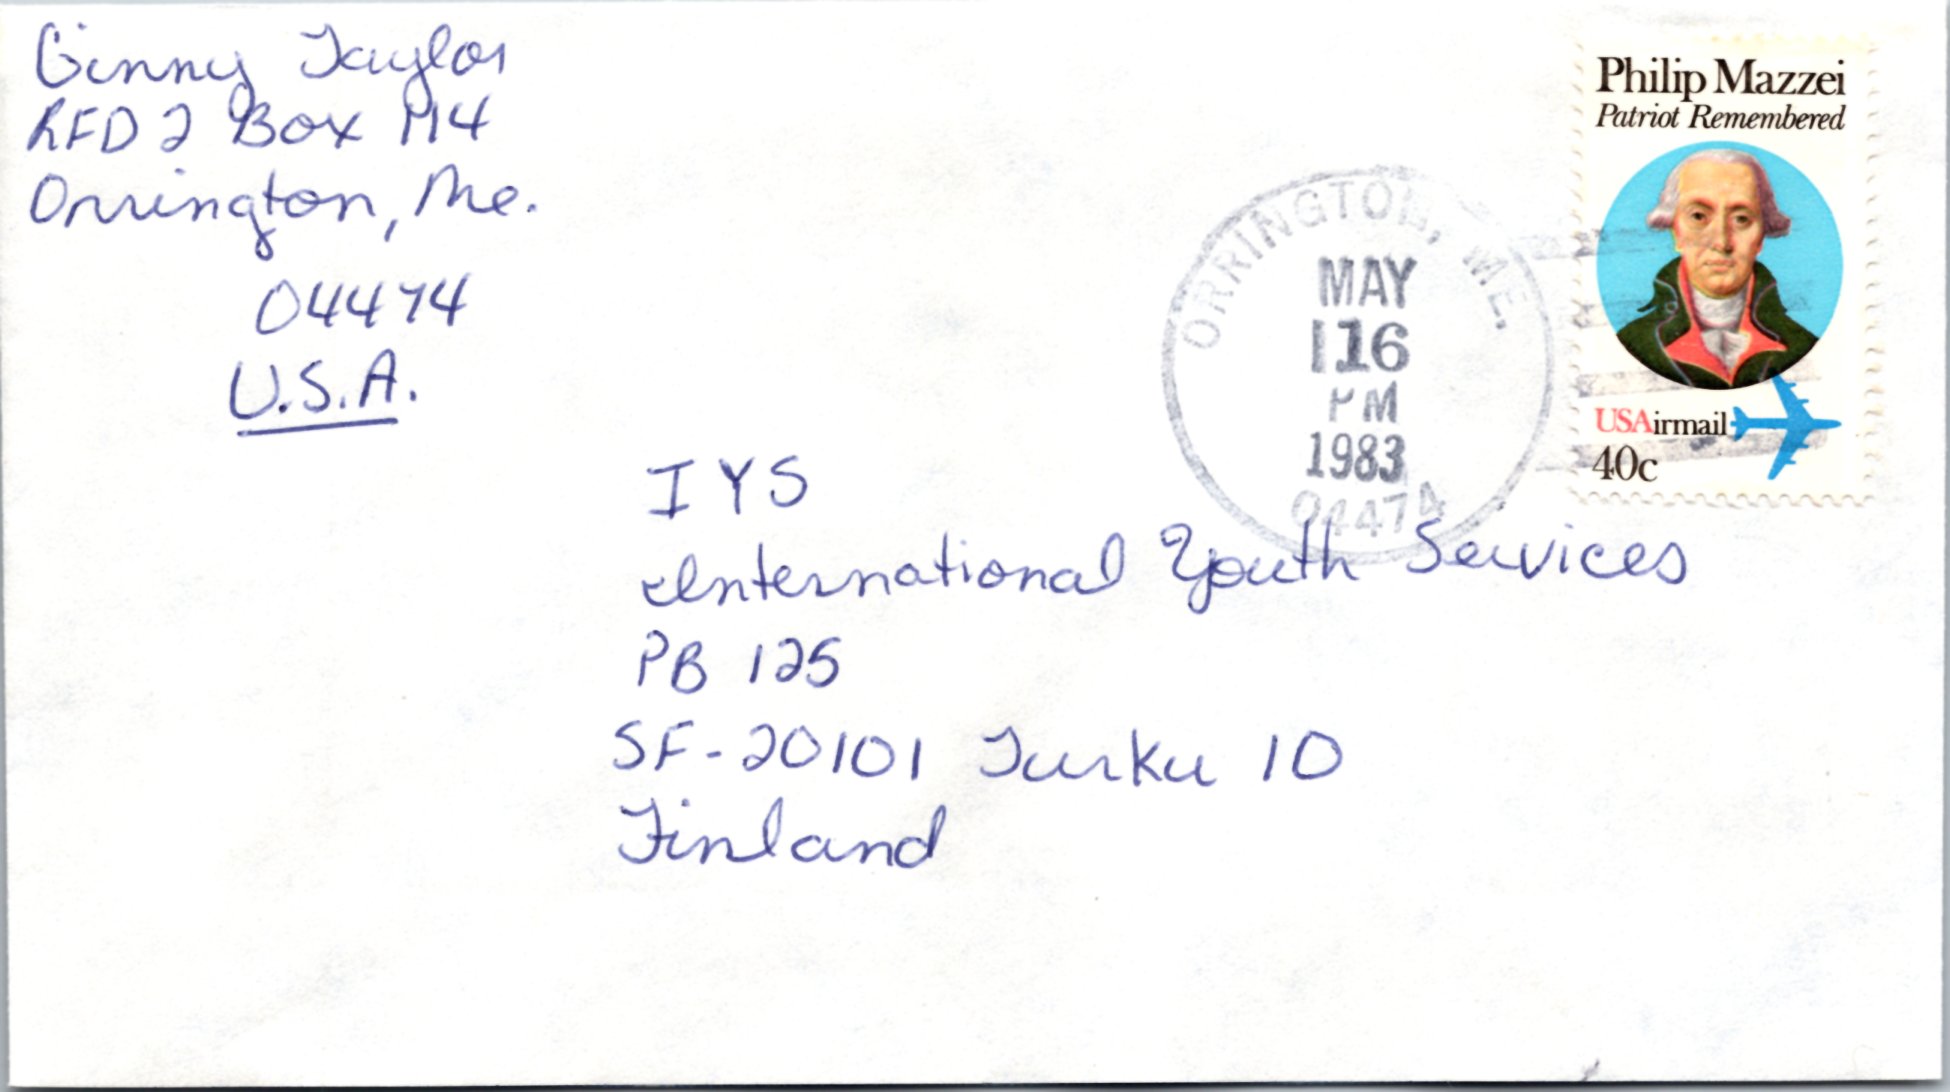 Ginny Taylor
RFD 2 Box 1114
Orrington, Me.
04474
U.S.A.
Philip Mazzei
Patriot Remembered
USAirmail
40c
ORRINGTON, ME.
MAY
16
PM
1983
04474
IYS
International Youth Services
PB 125
SF-20101 Turku 10
Finland